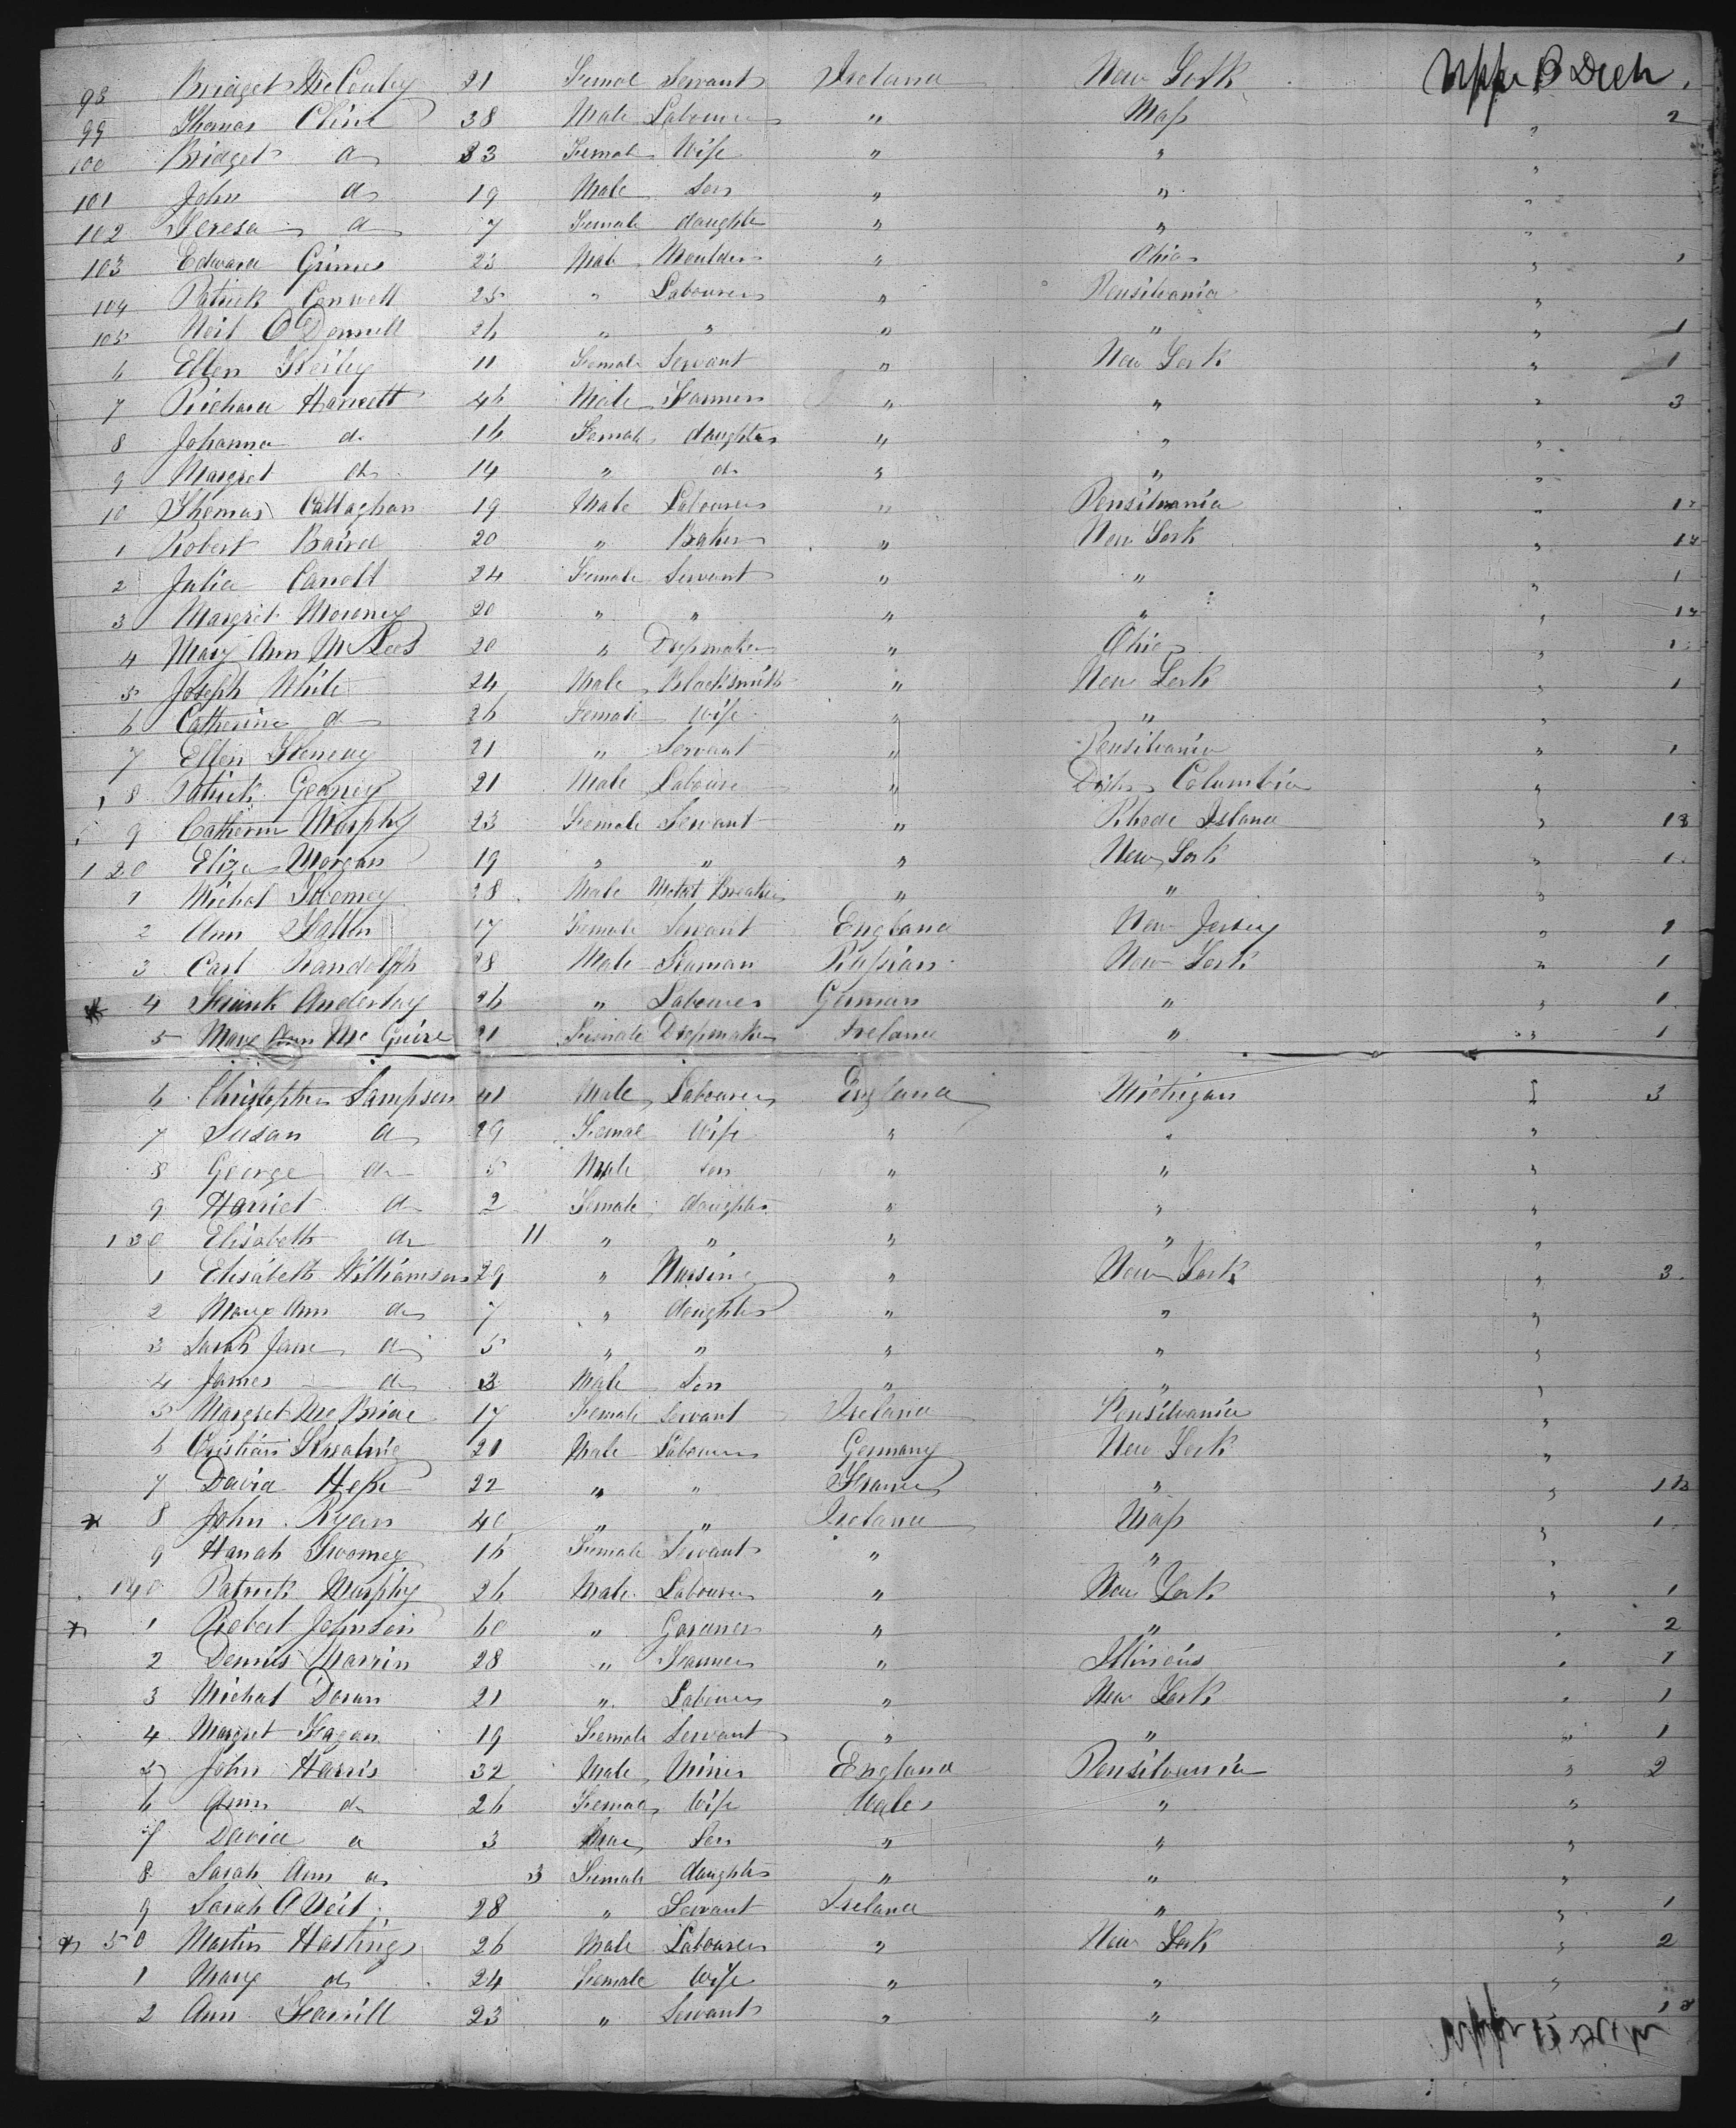 98 Bridget McCauley 21 Female Servant Ireland New York Upper B Deck
99 Thomas Cline 38 Male Labourer " Mass " 2
100 Bridget do 33 Female Wife " " "
101 John do 19 Male Son " " "
102 Teresa do 7 Female daughter " " "
103 Edward Grimes 23 Male Moulder " Ohio " 1
104 Patrick Conwell 25 " Labourer " Pensilvania "
105 Neil O'Donnell 26 " " " " " 1
6 Ellen 11 Female Servant " New York " 1
7 Richard Harnett 46 Male Farmer " " " 3
8 Johanna do 16 Female daughter " " "
9 Margret do 14 " do " " "
10 Thomas Callaghan 19 Male Labourer " Pensilvania "
1 Robert Baird 20 " Baker " New York "
2 Julia Carroll 24 Female Servant " " " 1
3 Margret Moroney 20 " " " " "
4 Mary Ann 20 " Dressmaker " Ohio " 1
5 Joseph White 24 Male Blacksmith " New York " 1
6 Catherine do 26 Female Wife " " "
7 Ellen 21 " Servant " Pensilvania " 1
8 Patrick Geaney 21 Male Labourer " Columbia "
9 Catherine Murphy 23 Female Servant " Rhode Island "
120 Eliza Morgan 19 " " " New York " 1
1 Michal Twomey 28 Male " " "
2 Ann 17 Female Servant England New Jersey " 1
3 Carl Randolph 28 Male Seaman Russian New York " 1
4 Frank 26 " Labourer German " " 1
5 Mary Ann McGuire 21 Female Dressmaker Ireland " " 1
6 Christopher Sampson 41 Male Labourer England Michigan " 3
7 Susan do 29 Female Wife " " "
8 George do 5 Male Son " " "
9 Harriet do 2 Female daughter " " "
130 Elisabeth do 11 " " " " "
1 Elisabeth Williamson 29 " Nursing " New York " 3
2 Mary Ann do 7 " daughter " " "
3 Sarah Jane do 5 " " " " "
4 James do 3 Male Son " " "
5 Margret McBride 17 Female Servant Ireland Pensilvania "
6 Cristian 21 Male Labourer Germany New York "
7 David Hess 22 " " France " "
8 John Ryan 40 " " Ireland Mass " 1
9 Hanah Twomey 16 Female Servant " " "
140 Patrick Murphy 26 Male Labourer " New York " 1
1 Robert Johnson 60 " Gardner " " " 2
2 Dennis 28 " Farmer " Illinois " 1
3 Michal Doran 21 " Labourer " New York " 1
4 Margret Fagan 19 Female Servant " " " 1
5 John Harris 32 Male Miner England Pensilvania " 2
6 Ann do 26 Female Wife Wales " "
7 David do 3 Male Son " " "
8 Sarah Ann do 3 Female daughter " " "
9 Sarah O'Neil 28 " Servant Ireland " " 1
50 Martin Hastings 26 Male Labourer " New York " 2
1 Mary do 24 Female Wife " " "
2 Ann Farrill 23 " Servant " "